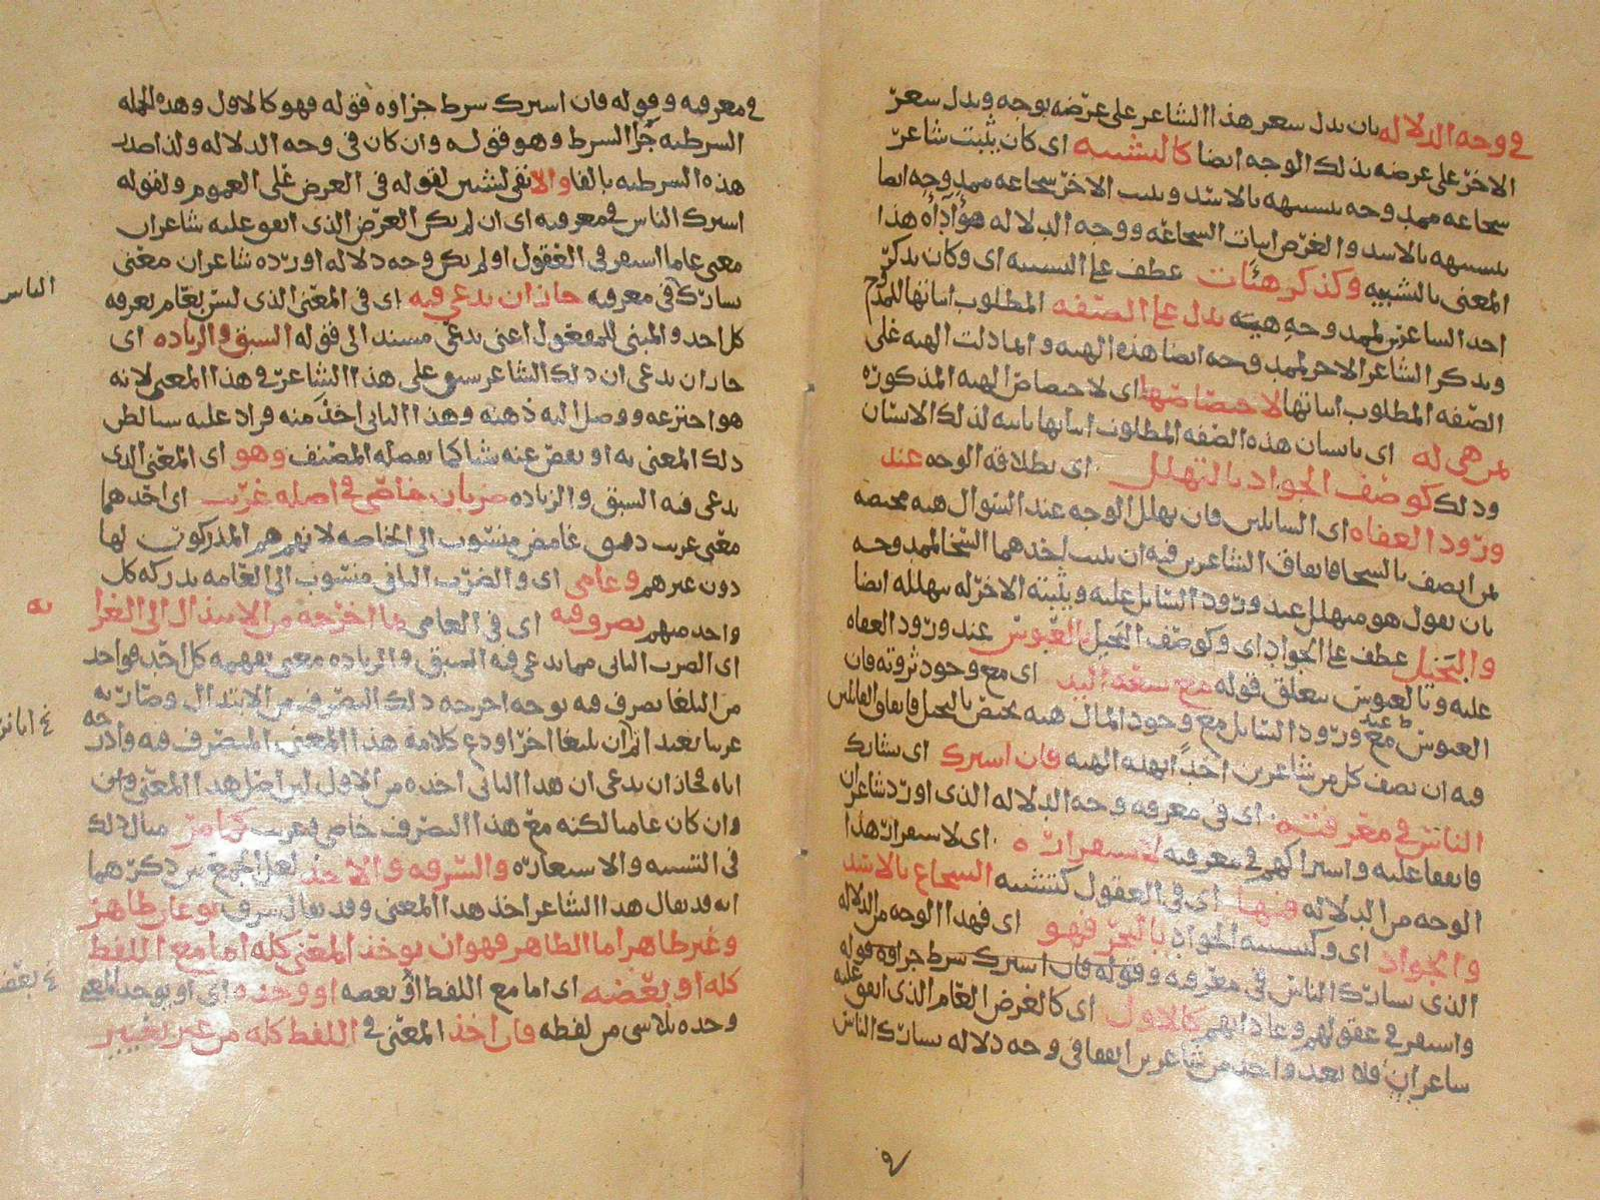 في وجه الدلاله بان يدل سعر هذا الشاعر على غرضه بوجه ويدل سعر
الاخر على غرضه بذلك الوجه ايضا كالتشبيه اى كان يثبت شاعر
سجاعه ممدوحه بتسبيهه بالاسد ويثبت الاخر سجاعه ممدوحه ايضا
بتسبيهه بالاسد والغرض اثبات السجاعه ووجه الدلاله هو اداه هذا
المعنى بالتشبيه وكذكر هئات عطف على التسبيه اى وكان يذكر
احد الساعرين لممدوحه هيئه يدل على الصفه المطلوب اثباتها للممدوح
ويذكر الشاعر الاخر لممدوحه ايضا هذه الهيه وانما دلت الهيه على
الصفه المطلوب اثباتها لاختصاصها اى لاختصاص الهيه المذكوره
بمن هى له اى بانسان هذه الصفه المطلوب اثباتها ثابته لذلك الانسان
وذلك كوصف الجواد بالتهلل اى بطلاقه الوجه عند
ورود العفاه اى السايلين فان تهلل الوجه عند السوال هيه مختصه
لمن اتصف بالسخا فاتفاق الشاعرين فيه ان يثبت احدهما السخا لممدوحه
بان يقول هو متهلل عند ورود السايل عليه ويثبته الاخر له بتهلله ايضا
والبخيل عطف على الجواد اى وكوصف البخيل بالعبوس عند ورود العفاه
عليه وبالعبوس يتعلق قوله مع سعه اليد اى مع وجود ثروته فان
العبوس عند ورود السايل مع وجود المال هيه يختص بالبخيل فاتفاق القائلين
فيه ان يصف كل من شاعرين احدا بهذه الهيه فان اسرك اى يشارك
الناس في معرفته اى في معرفه وجه الدلاله الذى اورد شاعران
فاتفقا عليه واستراكهم في معرفته لاستقراره اى لاستقرار هذا
الوجه من الدلاله فيها اى في العقول كتشبيه السجاع بالاسد
والجواد اى وكتسبيه الجواد بالبحر فهو اى فهذا الوجه من الدلاله
الذى يسارك الناس في معرفته وقوله فان اسرك سرط جزاوه قوله
واستقر في عقولهم وعاداتهم كالاول اى كالغرض العام الذى اتفق عليه
ساعران فلا يعد واحد من شاعرين اتفقا في وجه دلاله يسارك الناس
في معرفته وقوله فان اسرك سرط جزاوه قوله فهو كالاول وهذه الجمله
السرطيه جزا السرط وهو قوله وان كان في وجه الدلاله ولذا صدر
هذه السرطيه بالفا والا نفى لشيين لقوله في الغرض على العموم ولقوله
اسرك الناس في معرفته اى ان لم يكن الغرض الذى اتفق عليه شاعران
معنى عاما استقر في العقول او لم يكن وجه دلاله اورده شاعران معنى
يسارك في معرفته جاز ان يدعى فيه اى في المعنى الذى ليس بعام يعرفه
الناس
كل احد والمبنى للمفعول اعنى يدعى مسند الى قوله السبق والزياده اى
جاز ان يدعى ان ذلك الشاعر سبق على هذا الشاعر في هذا المعنى لانه
هو اخترعه ووصل اليه ذهنه وهذا الثانى اخذ منه وزاد عليه سيا لطر
ذلك المعنى به او نقص عنه شيا كما يفصله المصنف وهو اى المعنى الذى
يدعى فيه السبق والزياده ضربان خاصى في اصله غريب اى احدهما
معنى غريب دقيق غامض منسوب الى الخاصه لانهم هم المدركون لها
دون غيرهم وعامى اى والضرب الثانى منسوب الى العامه يدركه كل
واحد منهم تصرف فيه اى في العامى بما اخرجه من الابتذال الى الغرا
به
اى الضرب الثانى مما يدعى فيه السبق والزياده معنى يفهمه كل احد فواحد
من البلغا تصرف فيه بوجه اخرجه ذلك التصرف من الابتذال وصار به
غريبا بعيدا ثم ان بليغا اخر اودع كلامه هذا المعنى المتصرف فيه وادرجه
اياه فجاز ان يدعى ان هذا الثانى اخذه من الاول ليس اصل هذا المعنى وان
وان كان عاميا لكنه مع هذا التصرف خاصى وغريب كما مر مثال ذلك
في التشبيه والاستعاره والسرقه والاخذ لعل الجمع بين ذكرهما
انه قد يقال هذا الشاعر اخذ هذا المعنى وقد يقال سرق نوعان ظاهر
وغير ظاهر اما الظاهر فهو ان يوخذ المعنى كله اما مع اللفظ
كله او بعضه اى اما مع اللفظ او بعضه او وحده اى او يوخذ المعنى
وحده بلا شى من لفظه فان اخذ المعنى في اللفظ كله من غير تغيير